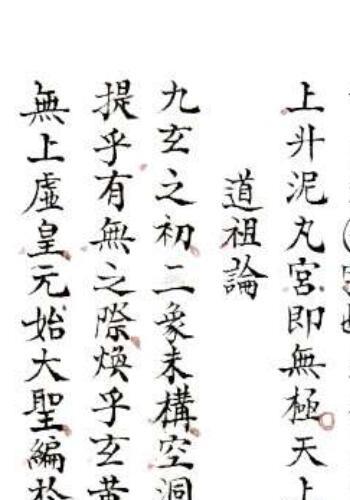 上升泥丸宮即無極天上
道祖論
九玄之初二象未構空洞
提乎有無之際煥乎玄黃
無上虛皇元始大聖編於